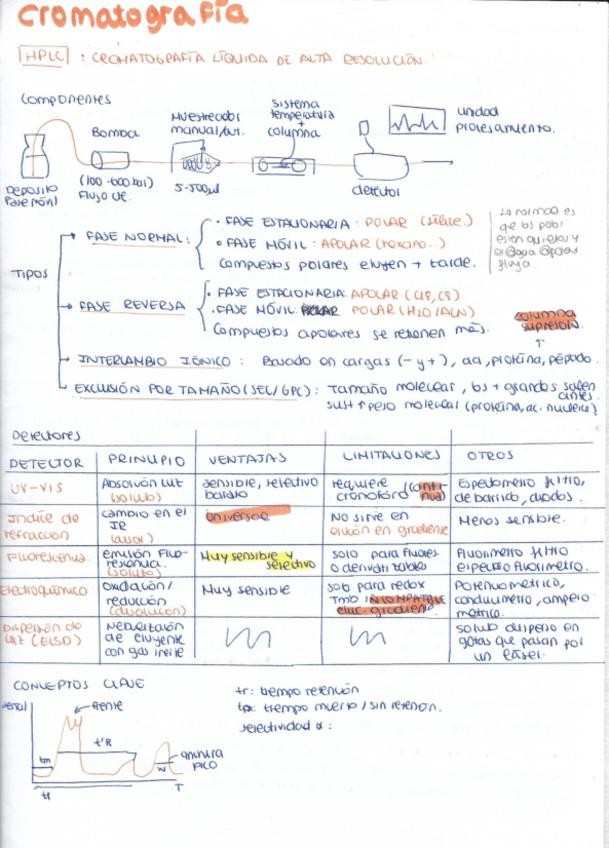 cromatografía
HPLC : CROMATOGRAFÍA LÍQUIDA DE ALTA RESOLUCIÓN.
Componentes
Depósito
Fase móvil
Bomba
(100-600 bar)
Flujo cte.
Muestreador
manual/aut.
5-500µl
Sistema
temperatura
+
columna
detector
unidad
procesamiento.
Tipos
FASE NORMAL:
• FASE ESTACIONARIA: POLAR (sílice)
• FASE MÓVIL: APOLAR (hexano..)
Compuestos polares eluyen + tarde.
Lo normal es
que los
estén quietos y
fluya.
FASE REVERSA
• FASE ESTACIONARIA: APOLAR (C18, C8)
• FASE MÓVIL: POLAR (H2O/ACN)
Compuestos apolares se retienen más.
columna
supresora
INTERCAMBIO IÓNICO: Basado en cargas (- y +), aa, proteína, péptido.
EXCLUSIÓN POR TAMAÑO (SEC/GPC): Tamaño molecular, los + grandes salen
antes
sust ↑ peso molecular (proteína, ac. nucleico)
Detectores
DETECTOR PRINCIPIO VENTAJAS LIMITACIONES OTROS
UV-VIS
Absorción luz
(soluto)
sensible, selectivo
barato
requiere
cromóforo
Espectómetro filtro,
de barrido, diodos.
Indice de
refracción
cambio en el
IR
universal
No sirve en
elución en gradiente
Menos sensible.
Fluorescencia
emisión Fluo-
rescencia.
(soluto)
Muy sensible y
selectivo
solo para fluores
o derivatizables
Fluorímetro filtro
espectrofluorímetro.
electroquímico
oxidación/
reducción
(disolución)
Muy sensible
solo para redox
Tmb INCOMPATIBLE
eluc. gradiente
Potenciométrico,
conductímetro, ampero
métrico.
Dispersión de
luz (ELSD)
Nebulización
de eluyente
con gas inerte
soluto disperso en
gotas que pasan por
un láser.
CONCEPTOS CLAVE
señal
frente
t'R
tm
tr
W
anchura
PICO
T
tr: tiempo retención
tm: tiempo muerto / sin retención.
selectividad α: